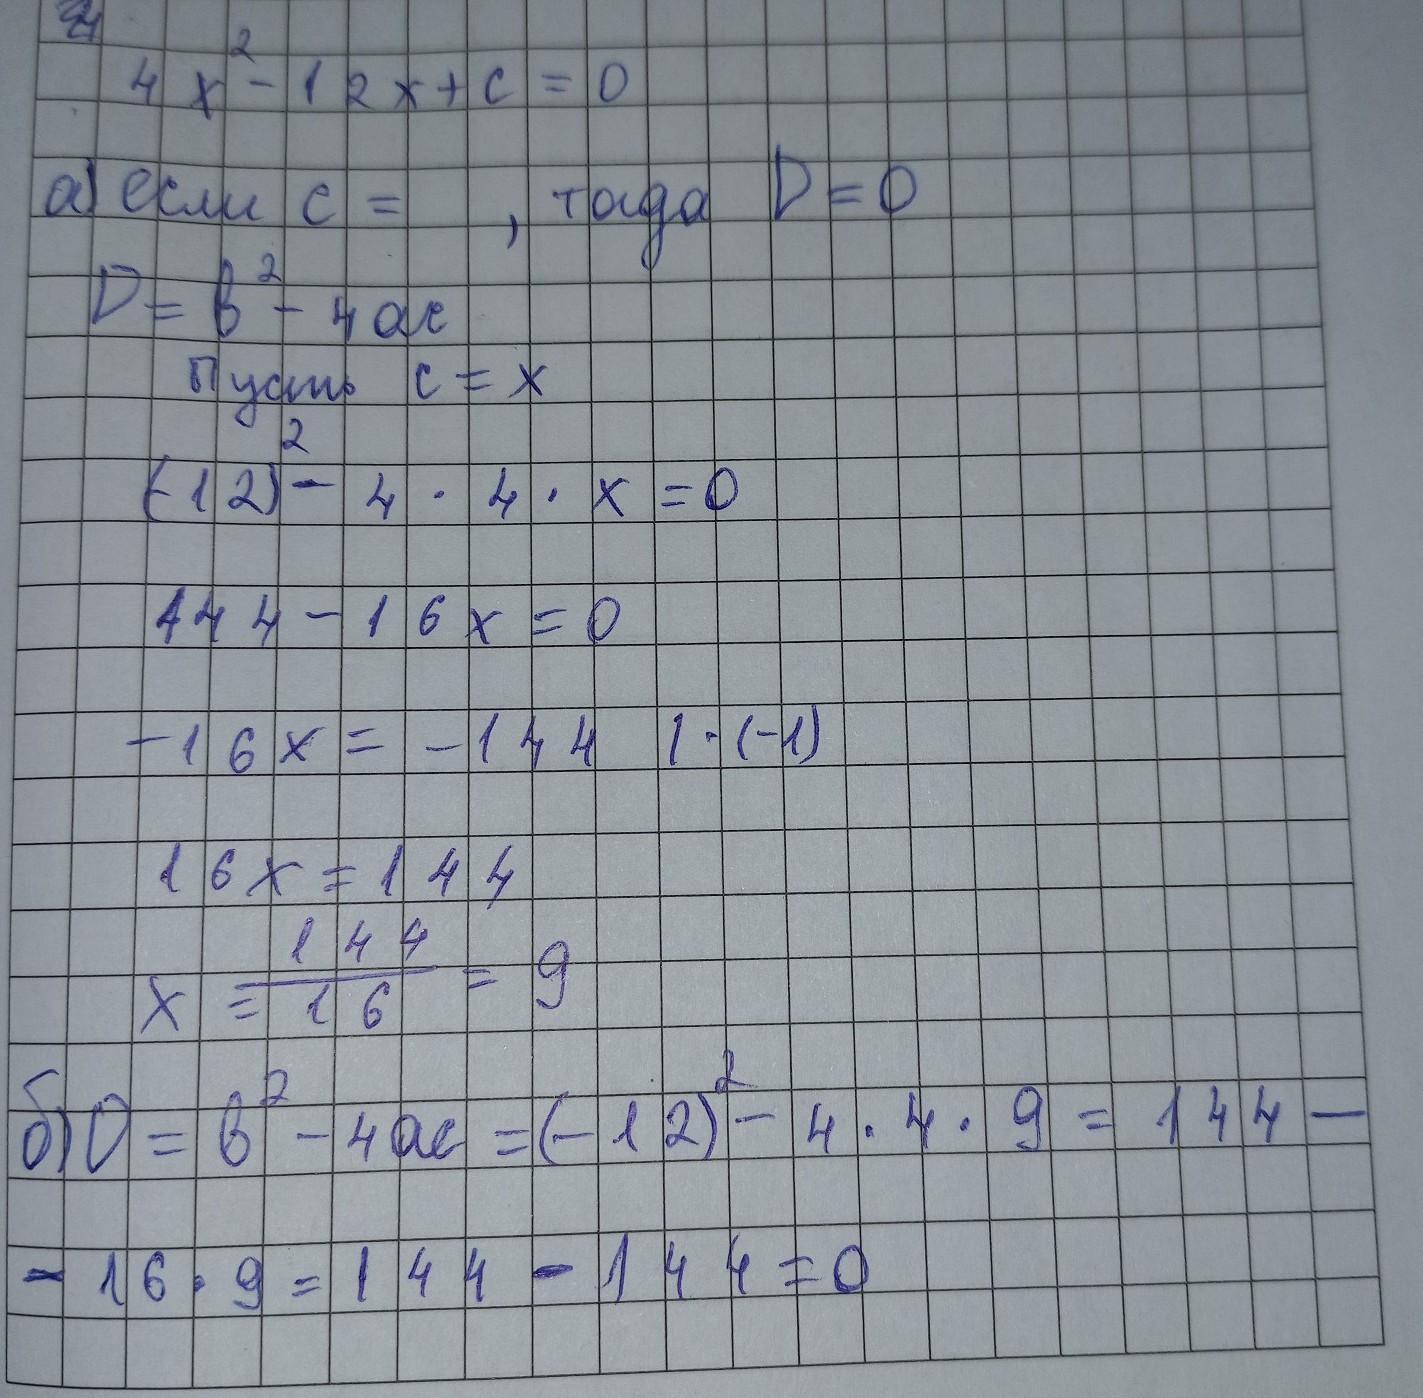 4x² - 12x + c = 0
а) если c = , тогда D = 0
D = b² - 4ac
Пусть c = x
(-12)² - 4 · 4 · x = 0
144 - 16x = 0
-16x = -144 | · (-1)
16x = 144
x = 144/16 = 9
б) D = b² - 4ac = (-12)² - 4 · 4 · 9 = 144 -
- 16 · 9 = 144 - 144 = 0